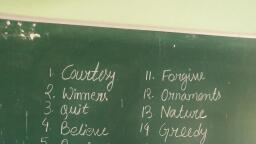 1. Courtesy
2. Winners
3. Quit
4. Believe
5.
11. Forgive
12. Ornaments
13 Nature
14 Greedy